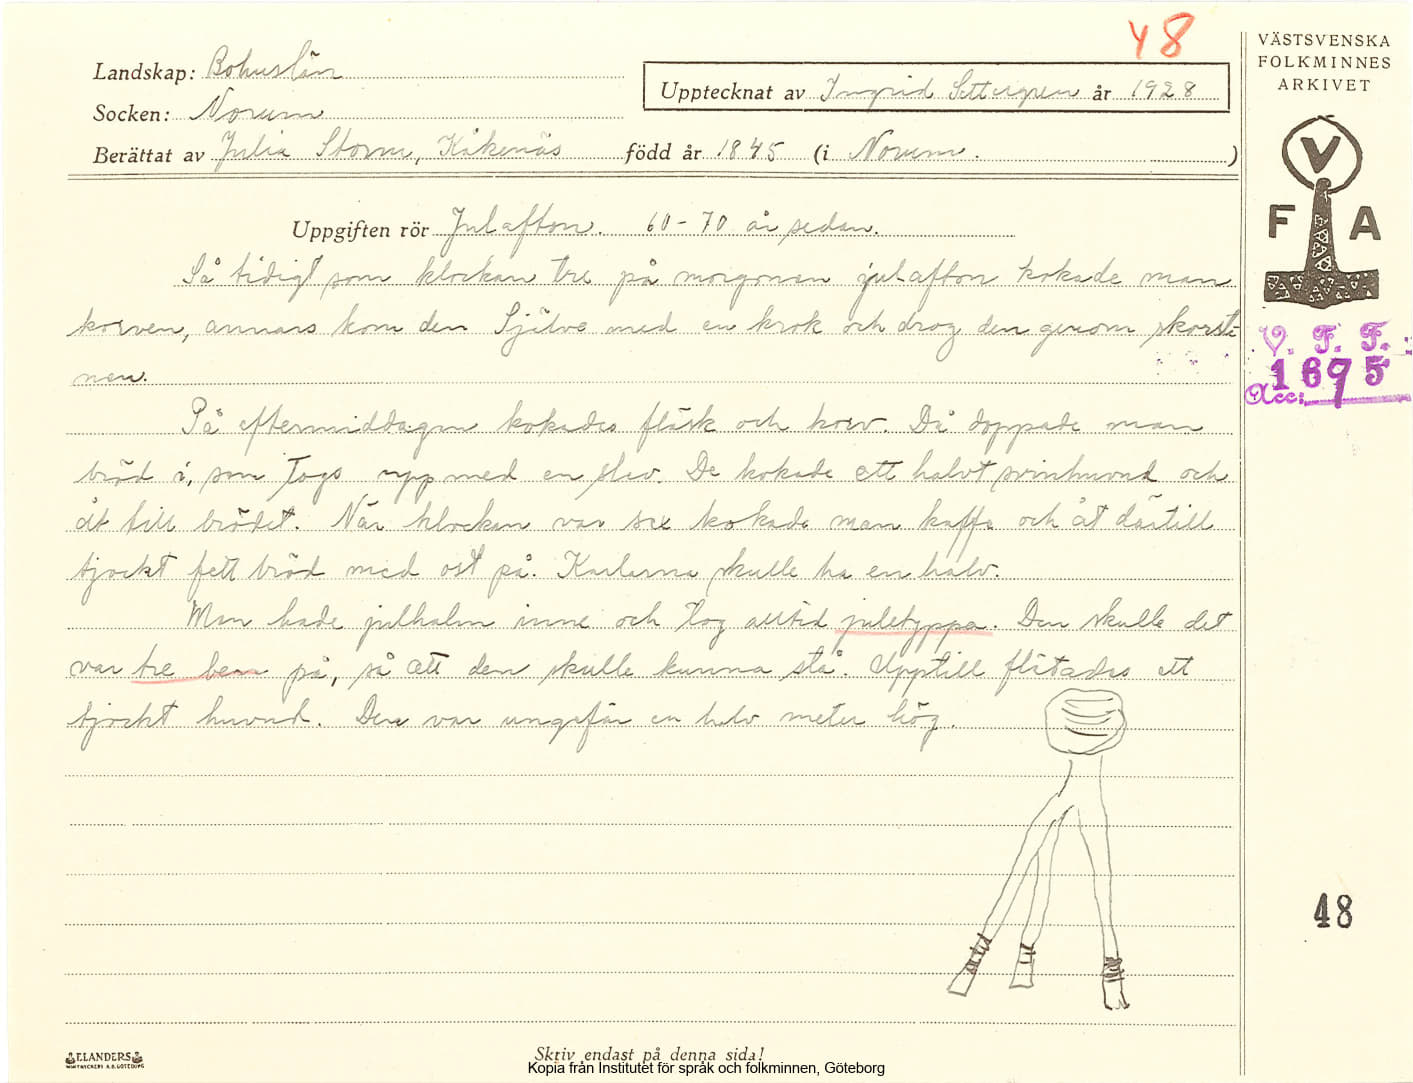 48
VÄSTSVENSKA
FOLKMINNES
ARKIVET
Landskap: Bohuslän
Upptecknat av Ingrid Settergren år 1928
Socken: Norum
Berättat av Julia Storm, Kåkenäs född år 1845 (i Norum.)
V
F A
Uppgiften rör Julafton. 60-70 år sedan.
Så tidigt som klockan tre på morgonen julafton kokade man
korven, annars kom den Själve med en krok och drog den genom skorste-
nen.
V. F. F.
1695
Acc:
På eftermiddagen kokades fläsk och korv. Då doppade man
bröd i, som togs upp med en slev. De kokade ett halvt svinhuvud och
åt till brödet. När klockan var sex kokade man kaffe och åt därtill
tjockt fett bröd med ost på. Karlarna skulle ha en halv.
Man hade julhalm inne och tog alltid juletyppa. Den skulle det
var tre ben på, så att den skulle kunna stå. Upptill flätades ett
tjockt huvud. Den var ungefär en halv meter hög.
48
ELANDERS
BOKTRYCKERI A.B. GÖTEBORG
Skriv endast på denna sida!
Kopia från Institutet för språk och folkminnen, Göteborg